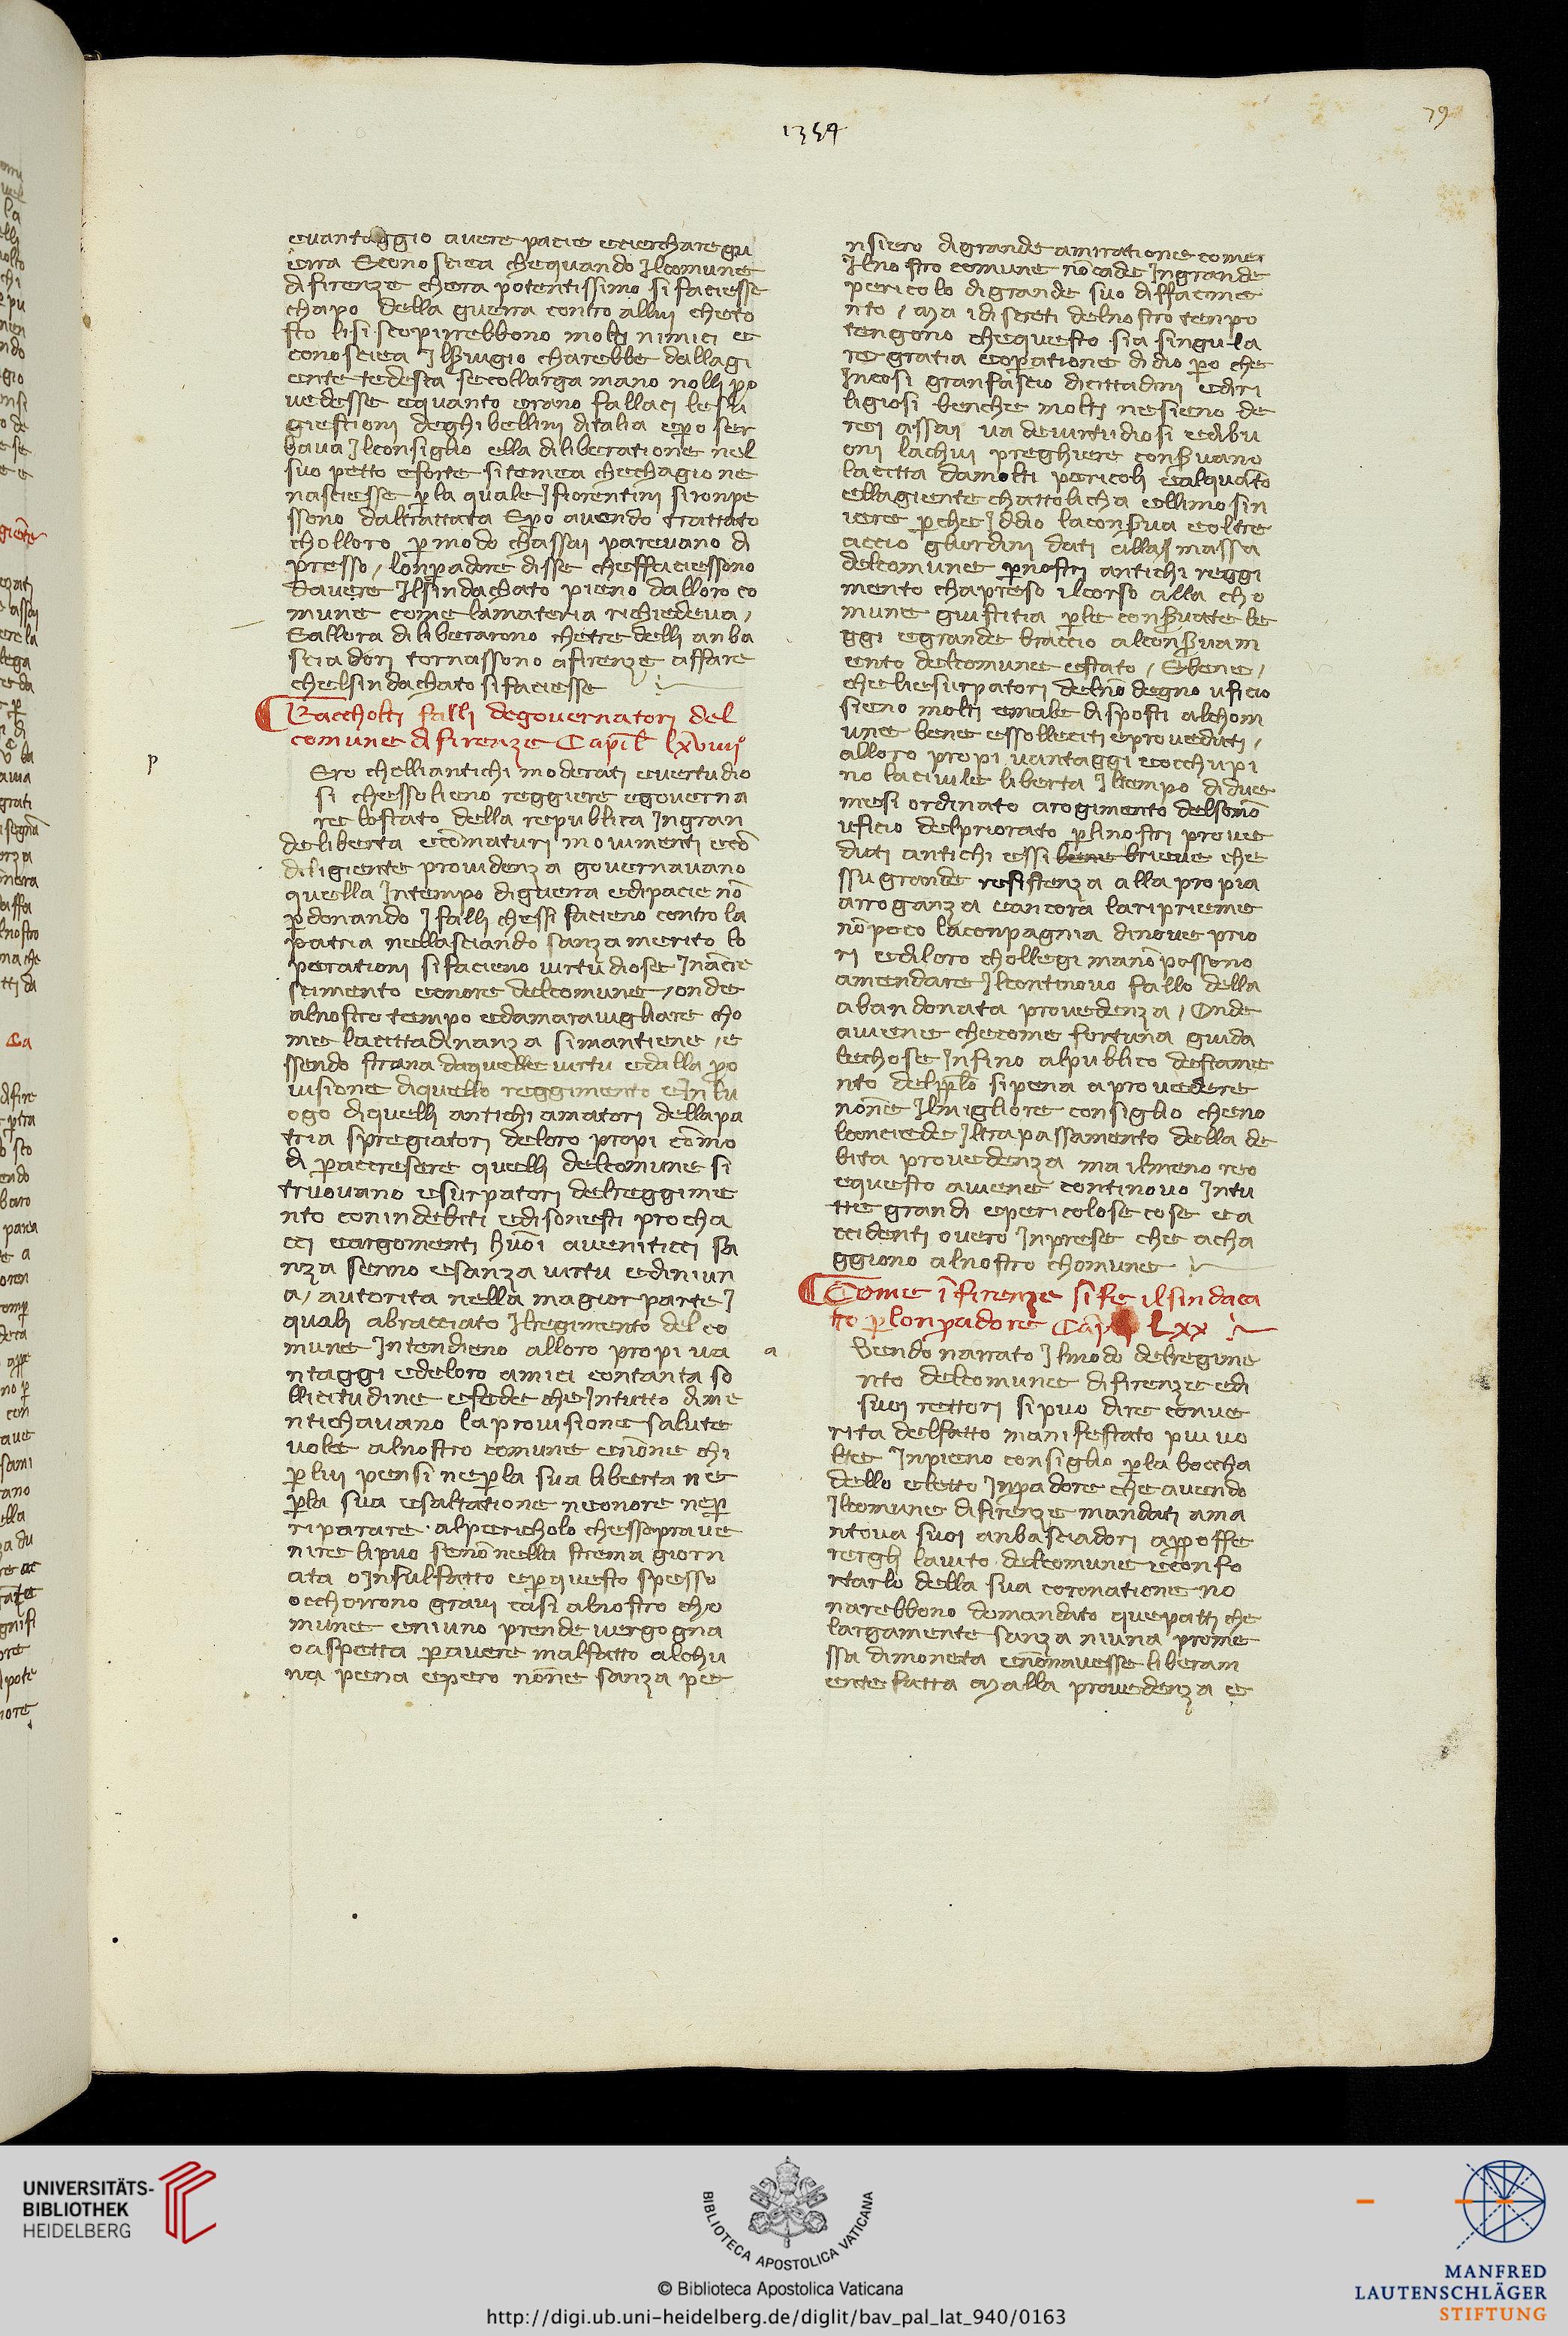 1354
79
evantaggio avere pacie ecierchare gu
erra Econosciea chequando Ilcomune
difirenze chera potentissimo si faciesse
chapo della guerra contro allui cheto
sto lisi scopirrebbono molti nimici e
conosciea Ils̄vigio charebbe dallagi
ente tedesca secollarga mano nolli p̱o
vedesse equanto erano fallaci lesu
giestioni deghibellini ditalia ep̱o ser
bava Ilconsiglio ella diliberatione nel
suo petto eforte sitemea chechagione
nasciesse p̱la quale I fiorentini sironpe
ssono daltrattata Ep̱o avendo trattato
cholloro p̱ modo chassai parevano di
presso / lonp̱adore disse cheffaciessono
davere Ilsindachato pieno dalloro co
mune come lamateria richiedeva /
Eallora diliberarono chetre delli anba
sciadori tornassono afirenze affare
chelsindachato sifaciesse
Raccholti falli degovernatori del
comune difirenze Capil̄ lxviiij°
p
Ero chelliantichi moderati evertudio
si chessolieno reggiere egoverna
re lostato della republica Ingran
deliberta ecōmaturi movimenti ecō
diligiente providenza governavano
quella Intempo diguerra edipacie nō
p̱donando I falli chessi facieno contro la
patria nellasciando sanza merito lo
perationi sifacieno virtudiose Inacre
scimento eonore delcomune / onde
alnostro tempo edamaravigliare cho
me lacittadinanza simantiene / e
ssendo strana daquelle virtu edalla p̱o
visione diquello reggimento eInlu
ogo diquelli antichi amatori dellapa
tria spregiatori deloro propi cōmo
di p̱accresere quelli delcomune si
truovano esurpatori delreggime
nto conindebiti edisonesti procha
cci eargomenti huōi aveniticci sa
nza senno esanza virtu ediniun
a / autorita nella magior parte I
quali abracciato Ilregimento del co
mune Intendieno alloro propi va
ntaggi edeloro amici contanta so
llicitudine efede che Intutto dime
ntichavano laprovisione salute
vole alnostro comune enōne chi
p̱ lui pensi nep̱la sua liberta ne
p̱la sua esaltatione neonore nep̱
riparare alpericholo chessoprave
nire lipuo senō nella strema giorn
ata oInsulfatto ep̱questo spesso
occhorrono gravi casi alnostro cho
mune eniuno prende vergogna
oaspetta p̱avere malfatto alchu
na pena epero nōne sanza pe
nsiero digrande amiratione comei
Ilnostro comune nōcade Ingrande
pericolo digrande suo diffacime
nto / Ma i discreti delnostro tenpo
tengono chequesto sia singula
re gratia eop̱atione didio p̱o che
Incosi granfascio dicittadini edire
ligiosi benche molti nesieno de
rei assai va devirtudiosi edibu
oni lachui preghiere cons̄vano
lacitta damolti pericoli ealquāto
ellagiente chattolicha ellimosin
iere p̱che Iddio lacons̄va eoltre
accio gliordini dati alla massa
delcomune p̱nostri antichi reggi
mento chapreso ilcorso alla cho
mune giustitia p̱le cons̄vate le
ggi egrande braccio alcons̄vam
ento delcomune estato / Ebene /
chelliesurpatori delnō degno uficio
sieno molti emale disposti alchom
une bene essolleciti eproveduti /
alloro propi vantaggi eocchupi
no lacivile liberta Iltempo didue
mesi ordinato arogimento delsomō
uficio delpriorato p̱linostri prove
duti antichi essi bene brieve che
ssu grande resistenza alla propia
arroganza eancora lariprieme
nōpoco laconpagnia dinove prio
ri ediloro chollegi manō possono
amendare Ilcontinovo fallo della
abandonata provedenza / Onde
aviene checome fortuna guida
lechose Infino alpubblico destame
nto delpp̄lo sipena aprovedere
nōne Ilmigliore consiglio cheno
lconciede Iltrapassamento della de
bita provedenza ma ilmeno reo
equesto aviene continovo Intu
tte grandi epericolose cose ea
ccidenti overo Inprese che acha
ggiono alnostro chomune
Come ī firenze si fe ilsindaca
to p̱ lonp̱adore Cap̄ Lxx
a
Vendo narrato Ilmodo delregime
nto delcomune difirenze edi
suoi rettori sipuo dire conve
rita delfatto manifestato piu vo
lte Inpieno consiglio p̱la boccha
dello eletto Inp̱adore che avendo
Ilcomune difirenze mandati ama
ntova suoi anbasciadori ap̱offe
rergli laiuto delcomune econfo
rtarlo della sua coronatione no
narebbono domandato que patti che
largamente sanza niuna prome
ssa dimoneta enōnavesse liberam
ente fatta Malla provedenza e
UNIVERSITÄTS-
BIBLIOTHEK
HEIDELBERG
BIBLIOTECA APOSTOLICA VATICANA
© Biblioteca Apostolica Vaticana
http://digi.ub.uni-heidelberg.de/diglit/bav_pal_lat_940/0163
MANFRED
LAUTENSCHLÄGER
STIFTUNG